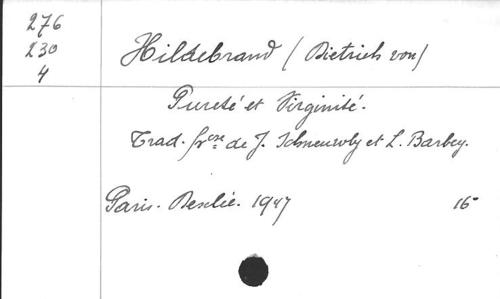 276
230
4
Hildebrand (Dietrich von)
Pureté et Virginité.
Trad. frçse de J. Schneuwly et L. Barbey.
Paris. Desclée. 1947 16°